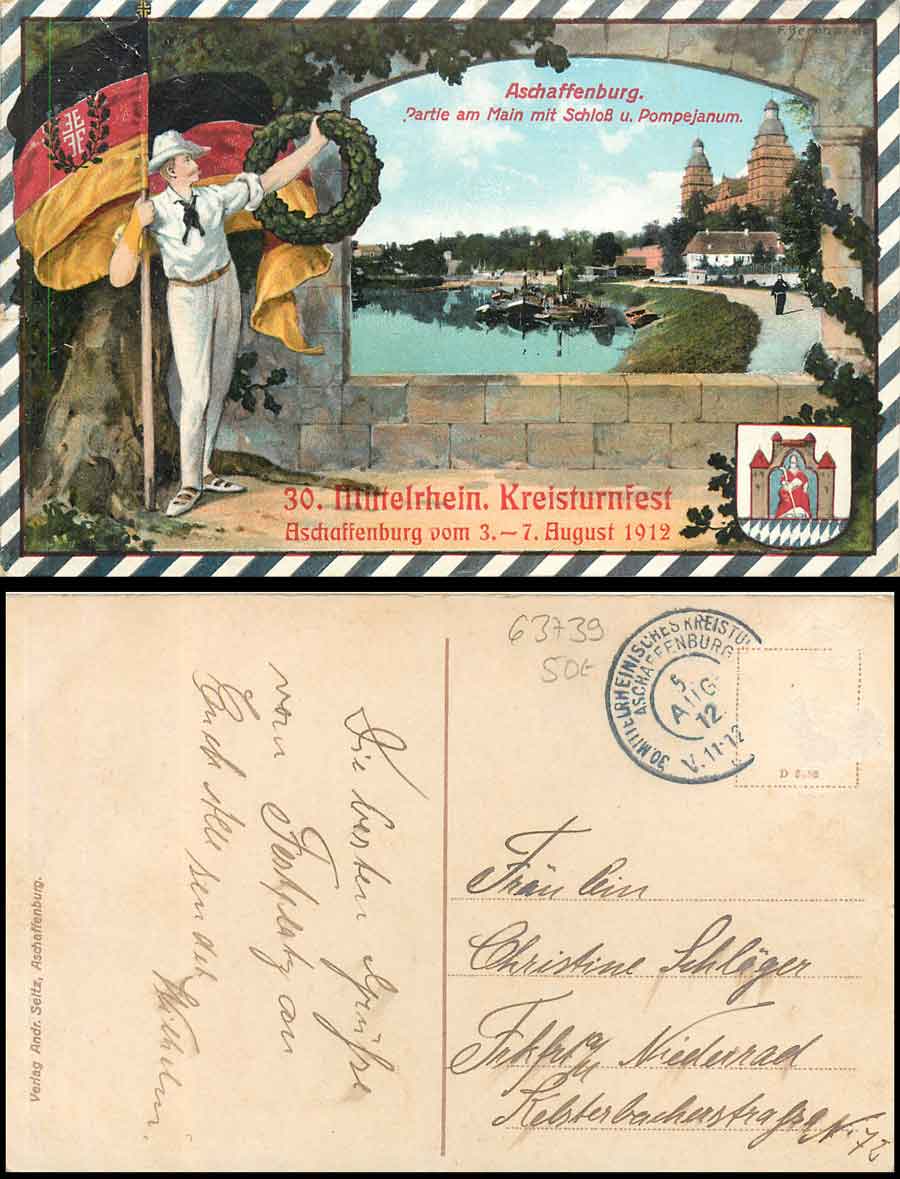 Aschaffenburg.
Partie am Main mit Schloß u. Pompejanum.
30. Mittelrhein. Kreisturnfest
Aschaffenburg vom 3.–7. August 1912
63739
50€
30. MITTELRHEINISCHES KREISTU
ASCHAFFENBURG
5
AUG.
12
V. 11-12
D
Die besten Grüße
vom Festplatz an
Euch alle sendet
Wilhelm.
Fräulein
Christine Schläger
Frkfrt a/M Niederrad
Kelsterbacherstraße No 72
Verlag Andr. Seitz, Aschaffenburg.